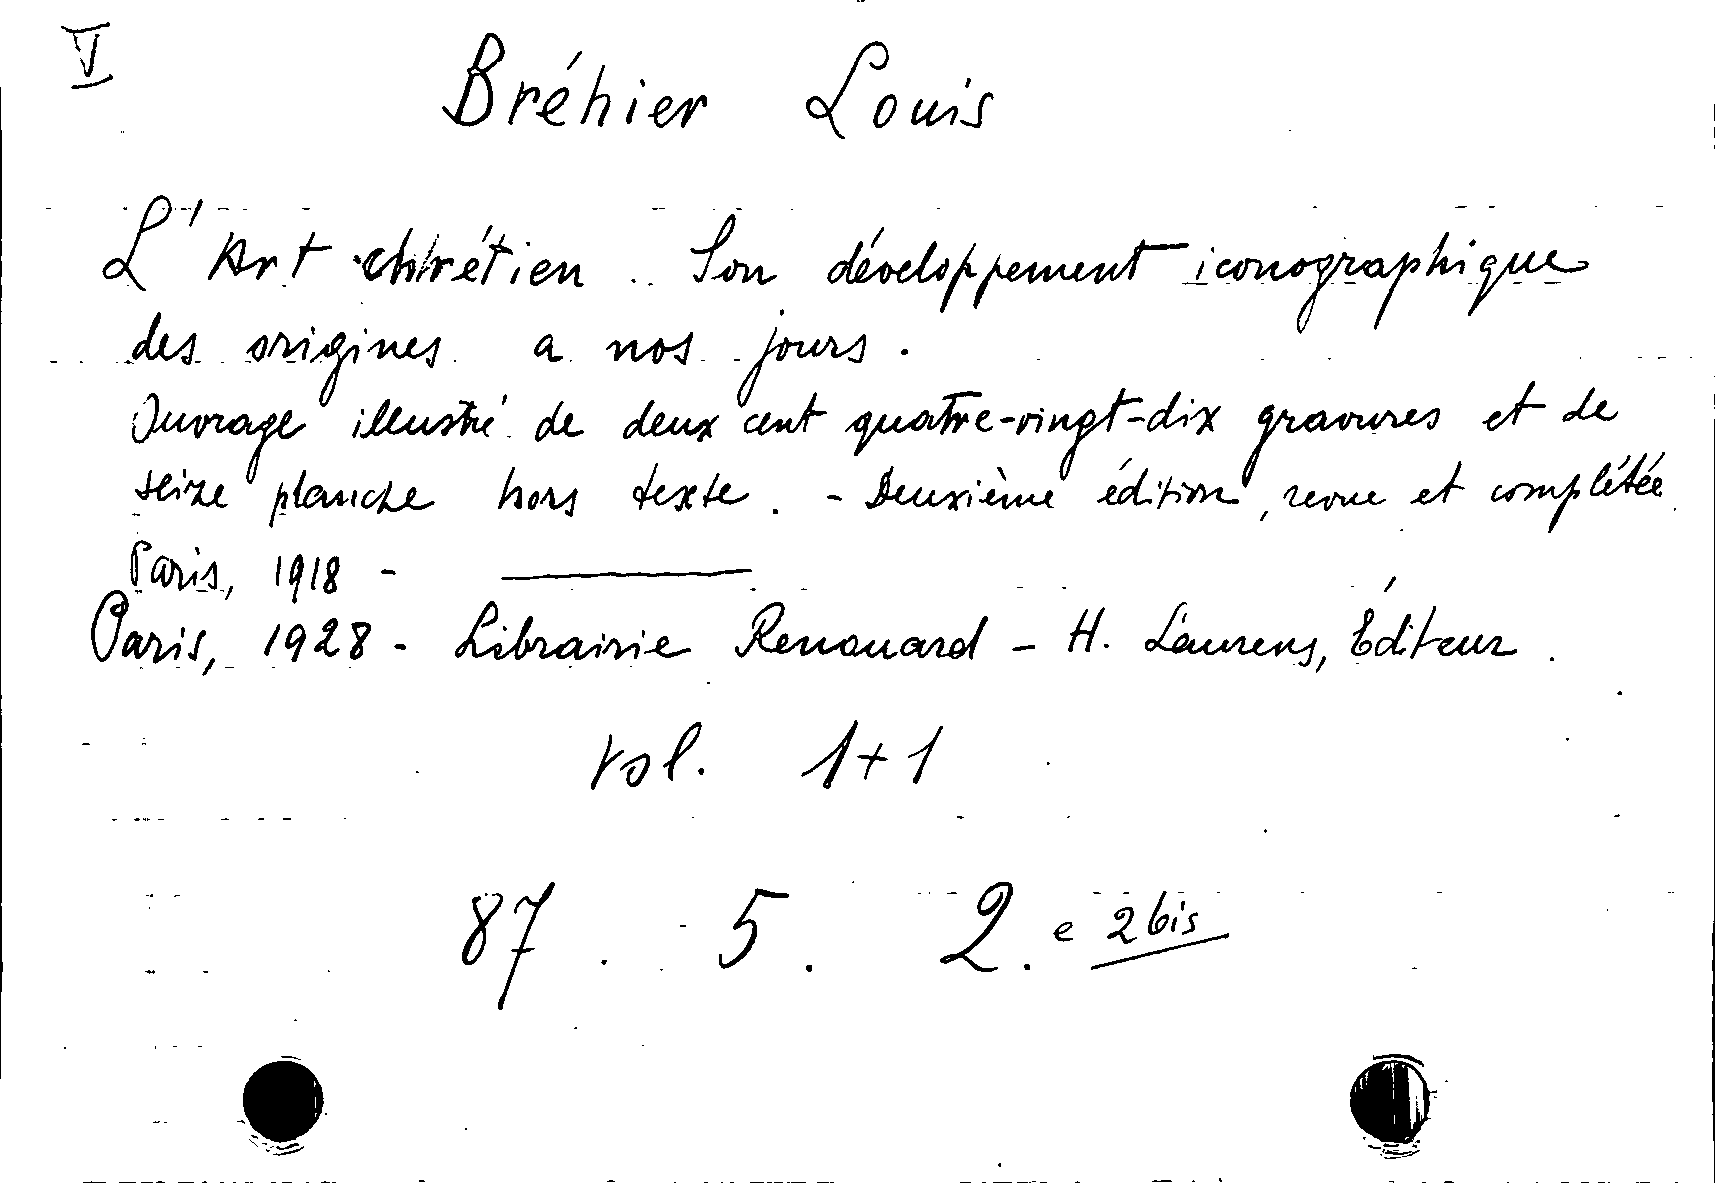 V
Bréhier Louis
L'Art chrétien. Son développement iconographique
des origines a nos jours.
Ouvrage illustré de deux cent quatre-vingt-dix gravures et de
seize planche hors texte. - Deuxième édition, revue et complétée
Paris, 1918 - ———
Paris, 1928 - Librairie Renouard - H. Laurens, Éditeur.
vol. 1+1
87. 5. 2. e 2 bis